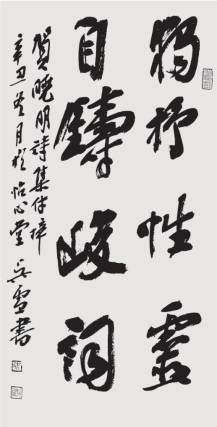 獨抒性靈
自鑄峻詞
賀曉明詩集付梓
辛丑冬月於怡心堂吳雪書